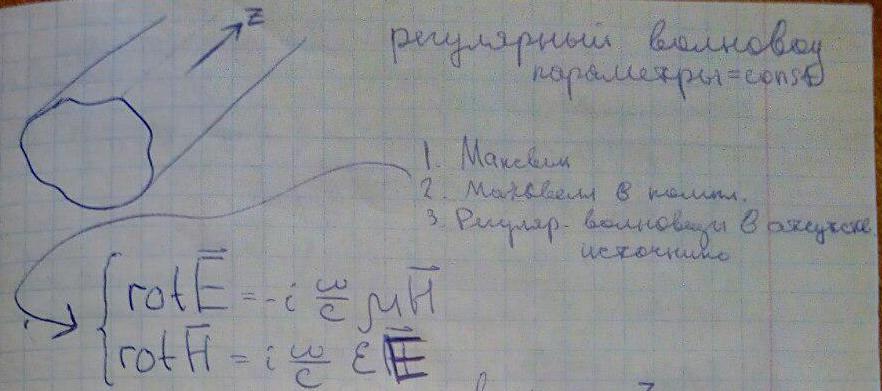 z
регулярный волновод
параметры=const
1. Максвелл
2. Максвелл в компл.
3. Регуляр. волноводы в отсутств.
источников
rot E̅ = -i ω/c μ H̅
rot H̅ = i ω/c ε E̅